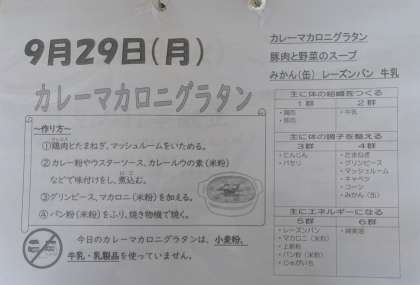 9月29日(月)
カレーマカロニグラタン
～作り方～
①鶏肉とたまねぎ、マッシュルームをいためる。
②カレー粉やウスターソース、カレールウの素(米粉)
などで味付けをし、煮込む。
③グリンピース、マカロニ(米粉)を加える。
④パン粉(米粉)をふり、焼き物機で焼く。
今日のカレーマカロニグラタンは、小麦粉、
牛乳・乳製品を使っていません。
カレーマカロニグラタン
豚肉と野菜のスープ
みかん(缶) レーズンパン 牛乳
主に体の組織をつくる
1群 2群
・鶏肉 ・牛乳
・豚肉
主に体の調子を整える
3群 4群
・にんじん ・たまねぎ
・パセリ ・グリンピース
・マッシュルーム
・キャベツ
・コーン
・みかん(缶)
主にエネルギーになる
5群 6群
・レーズンパン
・マカロニ(米粉)
・上新粉
・パン粉(米粉)
・じゃがいも